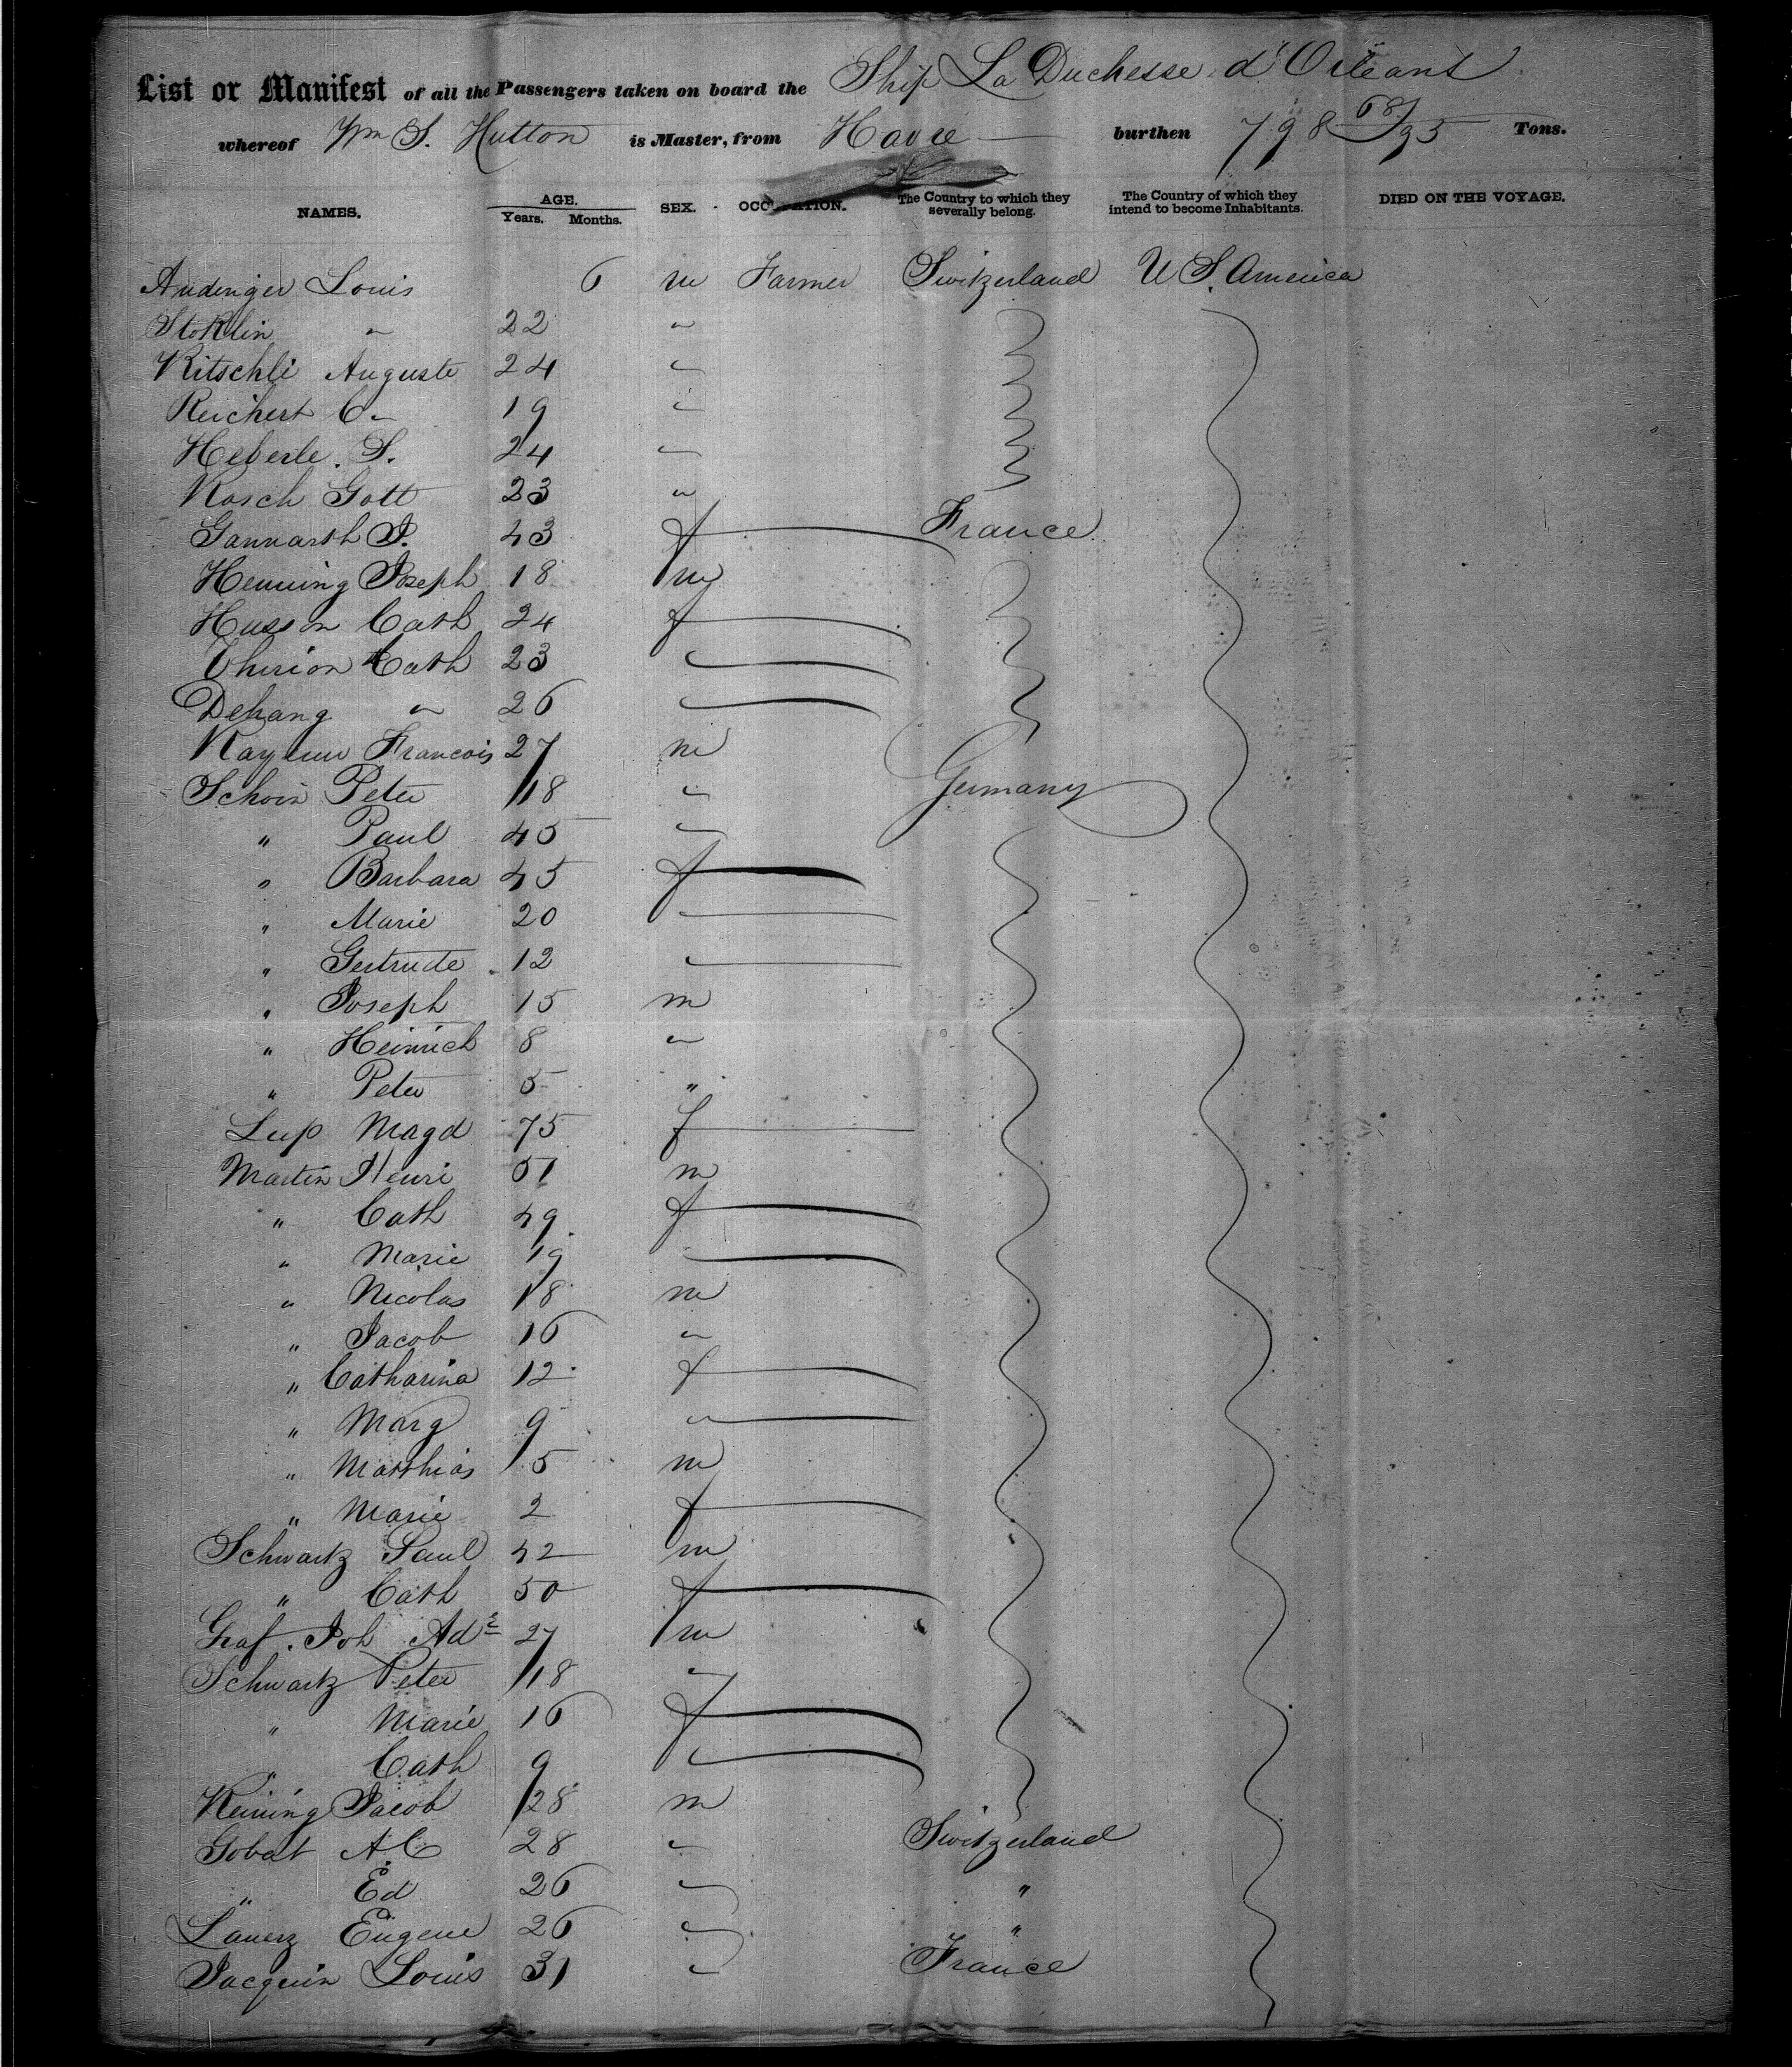 List or Manifest of all the Passengers taken on board the Ship La Duchesse d'Orleans
whereof Wm S. Hutton is Master, from Havre burthen 798 68/95 Tons.
NAMES. AGE. Years. Months. SEX. OCCUPATION. The Country to which they severally belong. The Country of which they intend to become Inhabitants. DIED ON THE VOYAGE.
Audinger Louis 6 m Farmer Switzerland U S. America
Stoklin " 22 "
Kitschli Auguste 24 "
Reichert C. 19 "
Heberle. S. 24 "
Rosch Gott 23 "
Gannarth J. 43 f France
Henning Joseph 18 m
Husson Cath 24 f
Thirion Cath 23 "
Dehang " 26 "
Francois 27 m
Schoin Peter 18 " Germany
" Paul 45 "
" Barbara 45 f
" Marie 20 "
" Gertrude 12 "
" Joseph 15 m
" Heinrich 8 "
" Peter 5 "
Lup Magd 75 f
Martin Henri 51 m
" Cath 49 f
" Marie 19 "
" Nicolas 18 m
" Jacob 16 "
" Catharina 12 f
" Marg 9 "
" Matthias 5 m
" Marie 2 f
Schwartz Paul 42 m
" Cath 50 f
Graf. Joh Ad 27 m
Schwartz Peter 18 "
" Marie 16 f
" Cath 9 "
Keining Jacob 28 m
Gobat A. C 28 " Switzerland
" Ed 26 " "
Lauerz Eugene 26 " "
Jacquin Louis 31 " France